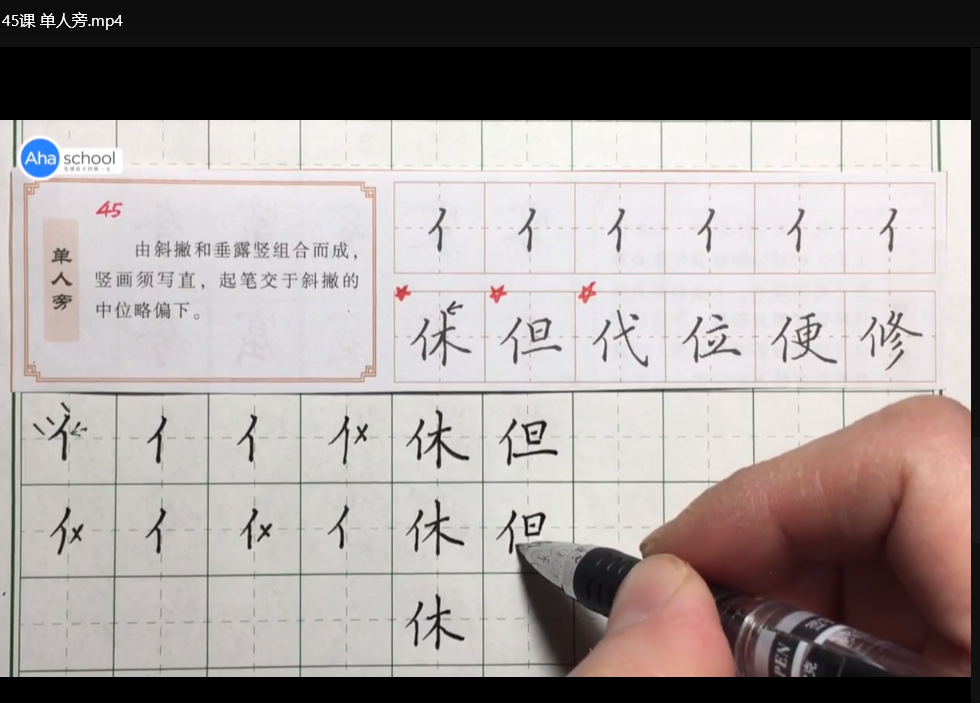 45课 单人旁.mp4
Aha school
45
单人旁
由斜撇和垂露竖组合而成，
竖画须写直，起笔交于斜撇的
中位略偏下。
亻 亻 亻 亻 亻 亻
休 但 代 位 便 修
亻 亻 亻 亻× 休 但
亻× 亻 亻× 亻 休 但
休
PEN